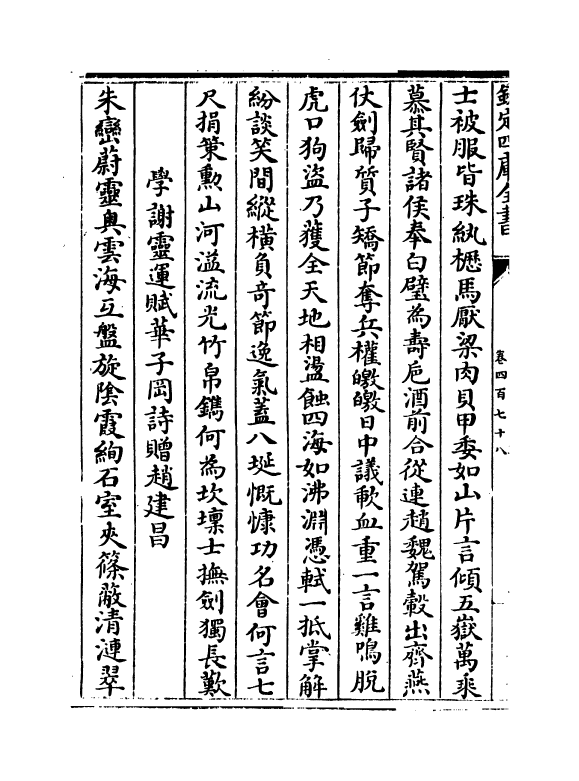 欽定四庫全書
卷四百七十八
士被服皆珠紈櫪馬厭梁肉貝甲委如山片言傾五嶽萬乘
慕其賢諸侯奉白璧為壽巵酒前合從連趙魏駕轂出齊燕
仗劍歸質子矯節奪兵權皦皦日中議歃血重一言雞鳴脱
虎口狗盜乃獲全天地相盪蝕四海如沸淵憑軾一抵掌解
紛談笑間縱横負奇節逸氣蓋八埏慨慷功名會何言七
尺捐䇿勲山河溢流光竹帛鐫何為坎壈士撫劍獨長歎
學謝靈運賦華子岡詩贈趙建昌
朱巒蔚靈輿雲海互盤旋陰霞絢石室夾篠蔽清漣翠